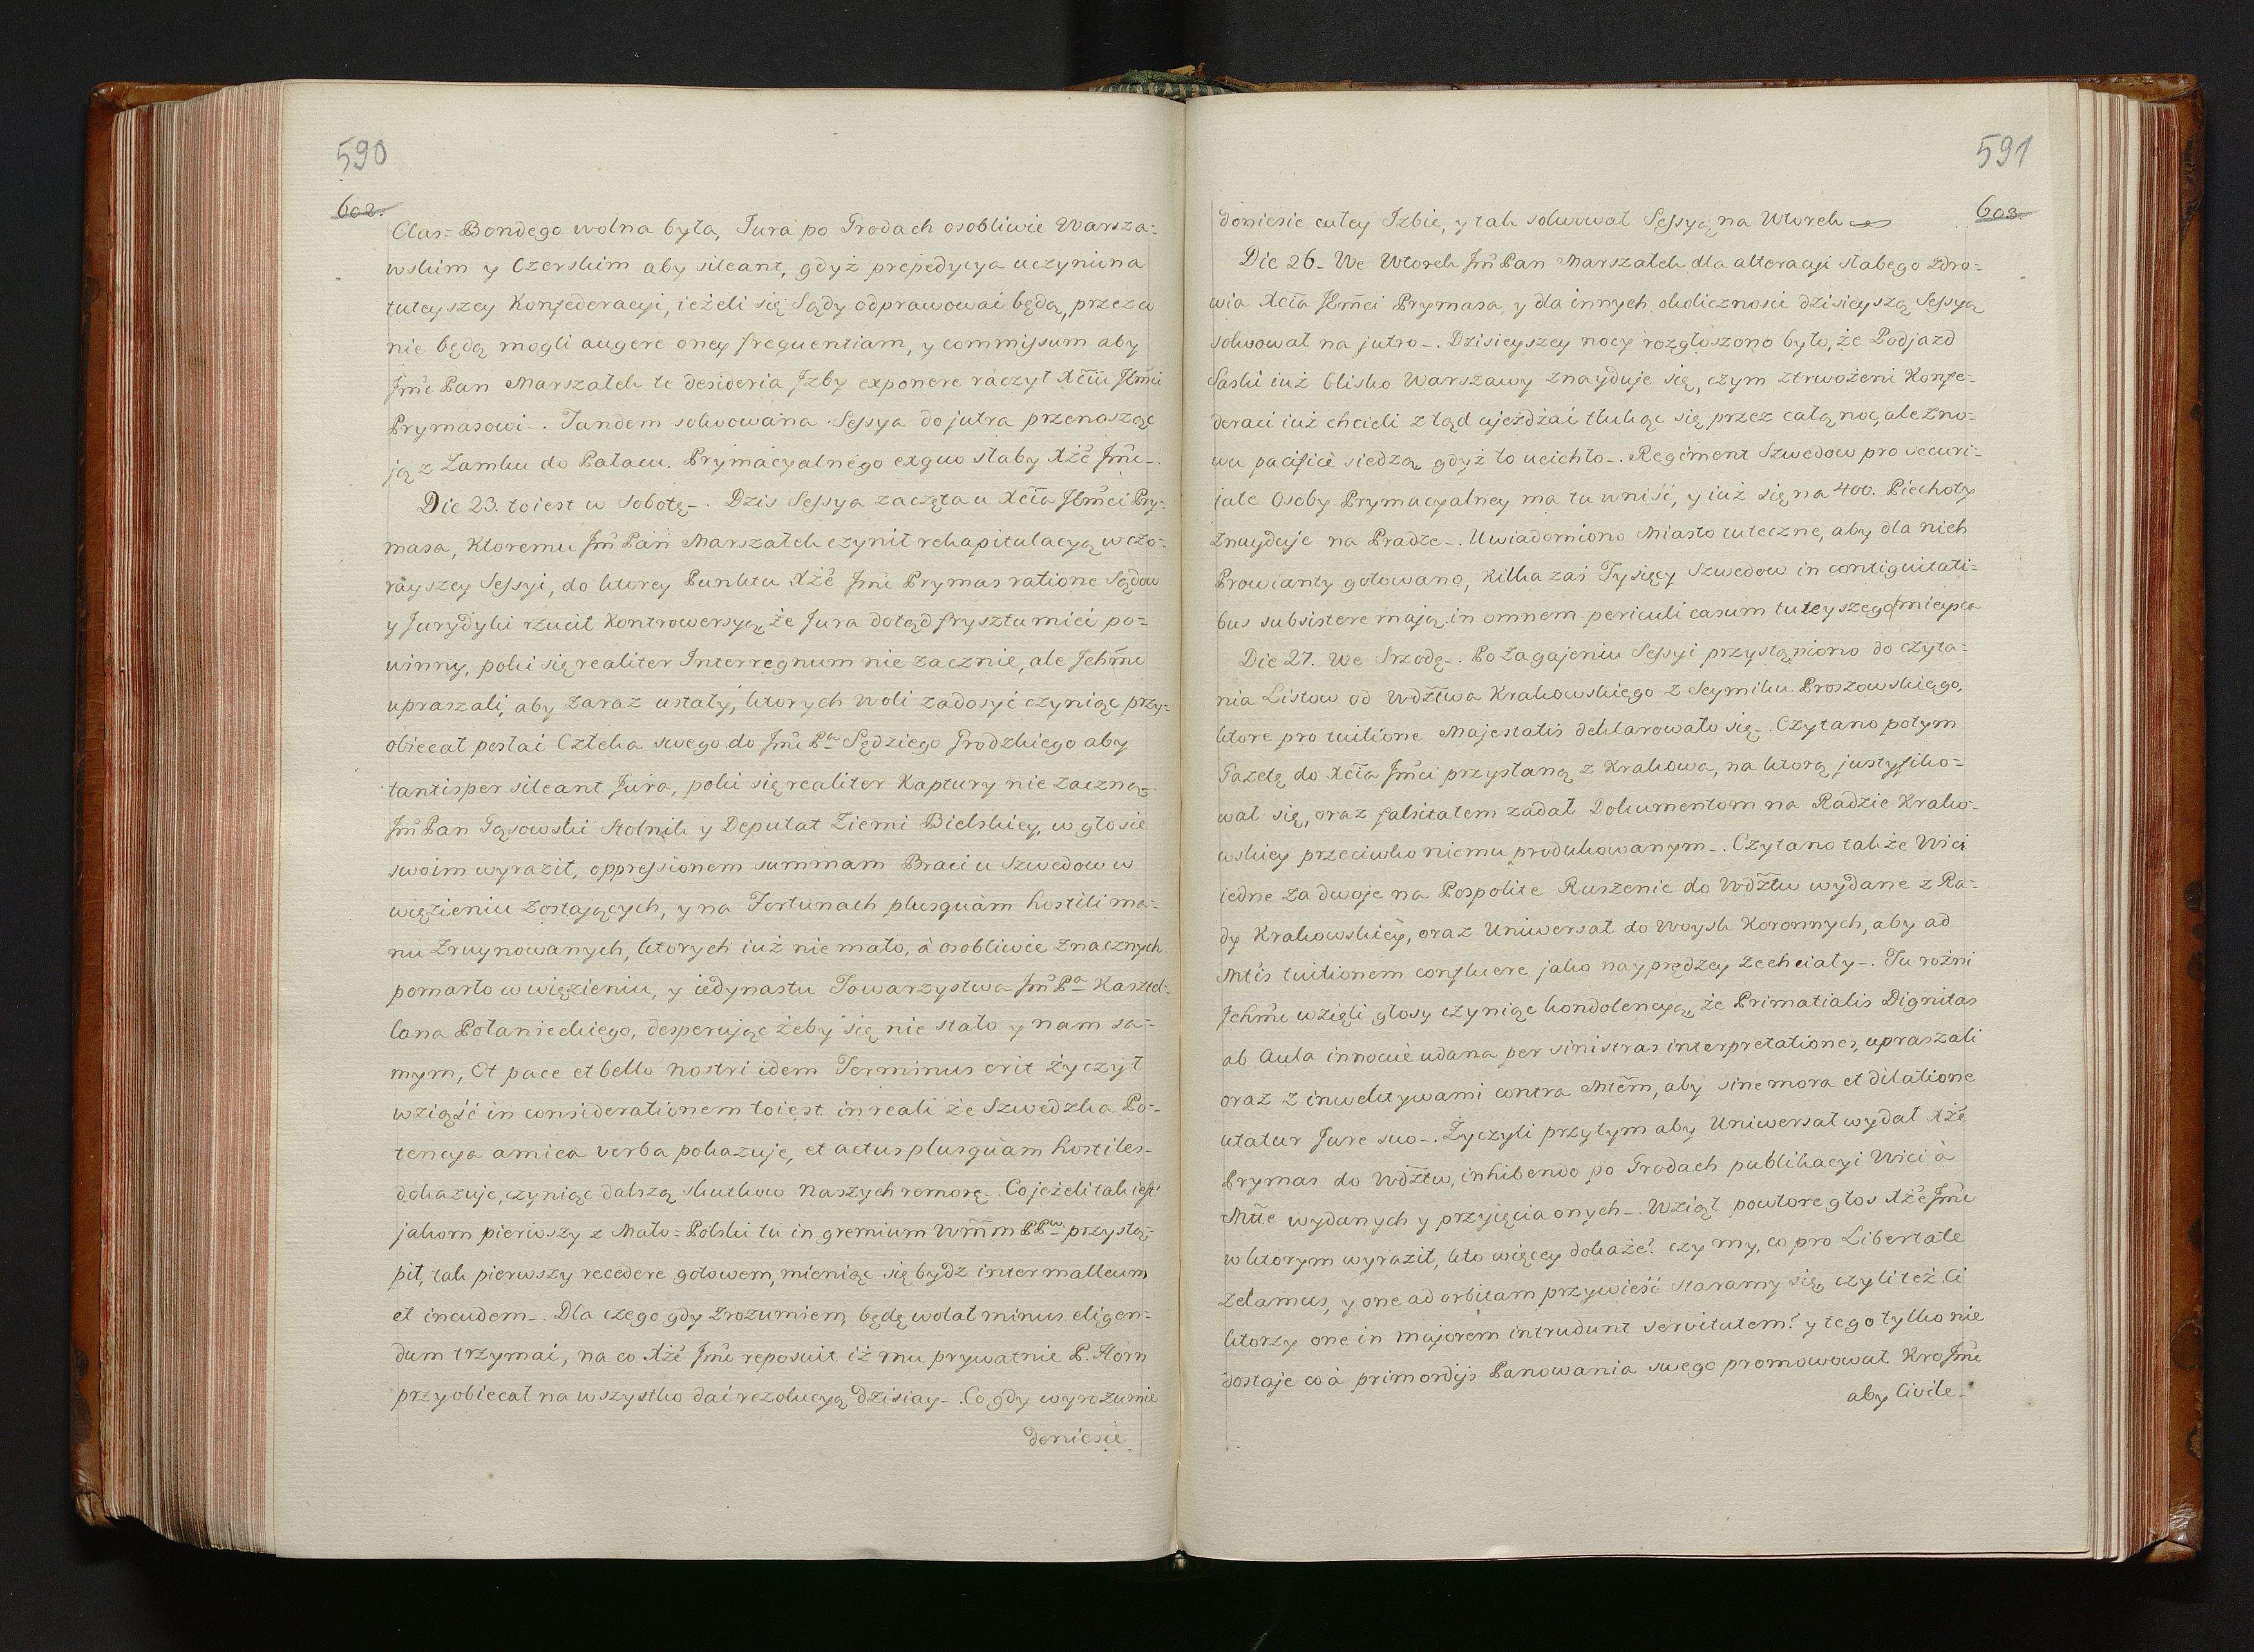 590
602.
Clas= Bondego wolna była, Jura po Grodach osobliwie Warsza=
wskim y Czerskim aby sileant, gdyż prepedycya uczyniona
tuteyszey Konfederacyi, ieżeli się Sądy odprawować będą, przez co
nie będą mogli augere oney frequentiam, y commissum aby
Jmc̃ Pan Marszałek te desideria Jzby exponere raczył Xc̃iu JEm̃ci
Prymasowi-. Tandem solwowana Sessya do jutra przenosząc
ją z Zamku do Pałacu. Prymacyalnego exquo słaby Xżẽ Jmc̃-.
Die 23. toiest w Sobotę-. Dzis Sessya zaczęta u Xc̃ia JEm̃ci Pry-
masa, Ktoremu Jm̃ Pan Marszałek czynił rekapitulacyą wczo-
rayszey Sessyi, do ktorey Punktu Xżẽ Jmc̃ Prymas ratione Sądow
y Jurydyki rzucił Kontrowersyą, że Jura dotąd frysztu mieć po=
winny, poki się realiter Interregnum nie zacznie, ale Jchm̃c
upraszali, aby zaraz ustały, ktorych woli zadosyć czyniąc przy=
obiecał posłać Człeka swego do Jmc̃ Pa Sędziego Grodzkiego aby
tantisper sileant Jura, poki się realiter Kaptury nie zaczną-.
Jm̃ Pan Gąsowski Stolnik y Deputat Ziemi Bielskiey, w głosie
swoim wyraził, oppressionem summam Braci u Szwedow w
więzieniu zostających, y na Fortunach plusquàm hostili ma-
nu zruynowanych, ktorych iuż nie mało, à osobliwie znacznych
pomarło w więzieniu, y iedynastu Towarzystwa Jm̃ Pa Kasztel-
lana Połanieckiego, desperując żeby się nie stało y nam sa-
mym, Et pace et bello nostri idem Terminus erit życzył
wziąść in considerationem toiest in reali że Szwedzka Po-
tencya amica verba pokazuje, et actus plusquàm hostiles-
dokazuje, czyniąc dalszą skutkow naszych remorę-. Co jeżeli tak iest
jakom pierwszy z Mało=Polski tu in gremium Wm̃m PPw przystą-
pił, tak pierwszy recedere gotowem, mieniąc się bydz inter malleum
et incudem-. Dla czego gdy zrozumiem, będę wolał minus eligen-
dum trzymać, na co Xżẽ Jmc̃ reposuit iż mu prywatnie P. Horn
przyobiecał na wszystko dać rezolucyą dzisiay-. Co gdy wyrozumie
doniesie
591
603
doniesie całey Izbie, y tak solwował Sessyą na Wtorek
Die 26- We Wtorek Jm̃ Pan Marszałek dla alteracyi słabego zdro-
wia Xc̃ia JEm̃ci Prymasa, y dla innych okolicznosci dzisieyszą Sessyą
solwował na jutro-. Dzisieyszey nocy rozgłoszono było, że Podjazd
Saski iuż blisko Warszawy znayduje się, czym ztrwożeni Konfe-
deraci iuż chcieli z tąd ujeżdżać tłukąc się przez całą noc, ale zno-
wu pacificè siedzą, gdyż to ucichło-. Regiment Szwedow pro securi-
tate Osoby Prymacyalney ma tu wniść, y iuż się na 400. Piechoty
znayduje na Pradze-. Uwiadomiono Miasto tuteczne, aby dla nich
Prowianty gotowano, Kilka zaś Tysięcy Szwedow in contiguitati-
bus subsistere mają in omnem periculi casum tuteyszego mieysca
Die 27. We Srzodę-. Po zagajeniu Sessyi przystąpiono do czyta-
nia Listow od Wdz̃twa Krakowskiego z Seymiku Proszowskiego,
ktore pro tuitione Majestatis deklarowało się-. Czytano potym
Gazetę do Xc̃ia Jm̃ci przysłaną z Krakowa, na ktorą justyfiko-
wał się, oraz falsitatem zadał Dokumentom na Radzie Krako-
wskiey przeciwko niemu produkowanym-. Czytano także Wici
iedne za dwoje na Pospolite Ruszenie do Wdz̃tw wydane z Ra-
dy Krakowskiey, oraz Uniwersał do Woysk Koronnych, aby ad
Mtis tuitionem confluere jako nayprędzey zechciały-. Tu rożni
Jchm̃c wzięli głosy czyniąc kondolencyą, że Primatialis Dignitas
ab Aula innocuè udana per sinistras interpretationes, upraszali
oraz z inwektywami contra Mtem̃, aby sine mora et dilatione
utatur Jure suo-. Życzyli przytym aby Uniwersał wydał Xżẽ
Prymas do Wdz̃tw, inhibendo po Grodach publikacyi Wici à
Mtte wydanych y przyjęcia onych-. Wziął powtore głos Xżẽ Jmc̃
w ktorym wyraził, kto więcey dokaże? czy my, co pro Libertate
zelamus, y one ad orbitam przywieść staramy się, czyli też Ci
ktorzy one in majorem intrudunt servitutem? y tego tylko nie
dostaje co à primordijs Panowania swego promowował Kro Jmc̃
aby Civile-